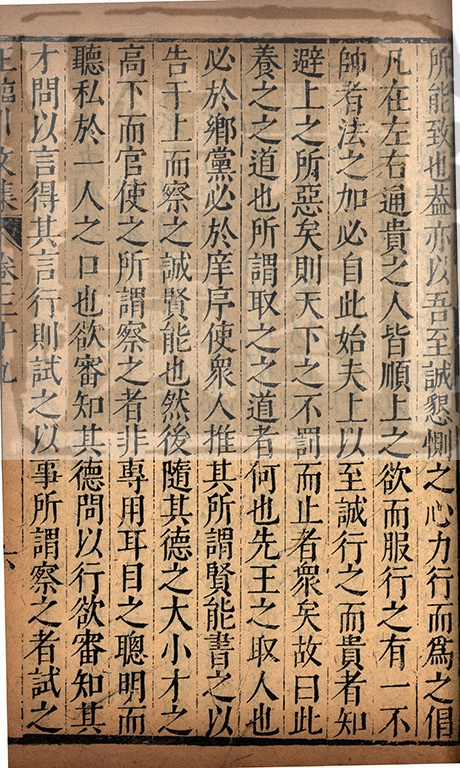 所能致也葢亦以吾至誠懇惻之心力行而爲之倡
凡在左右通貴之人皆順上之欲而服行之有一不
帥者法之加必自此始夫上以至誠行之而貴者知
避上之所惡矣則天下之不罰而止者衆矣故曰此
養之之道也所謂取之之道者何也先王之取人也
必於鄉黨必於庠序使衆人推其所謂賢能書之以
告于上而察之誠賢能也然後隨其德之大小才之
高下而官使之所謂察之者非專用耳目之聰明而
聽私於一人之口也欲審知其德問以行欲審知其
才問以言得其言行則試之以事所謂察之者試之
王臨川文集 卷三十九 六